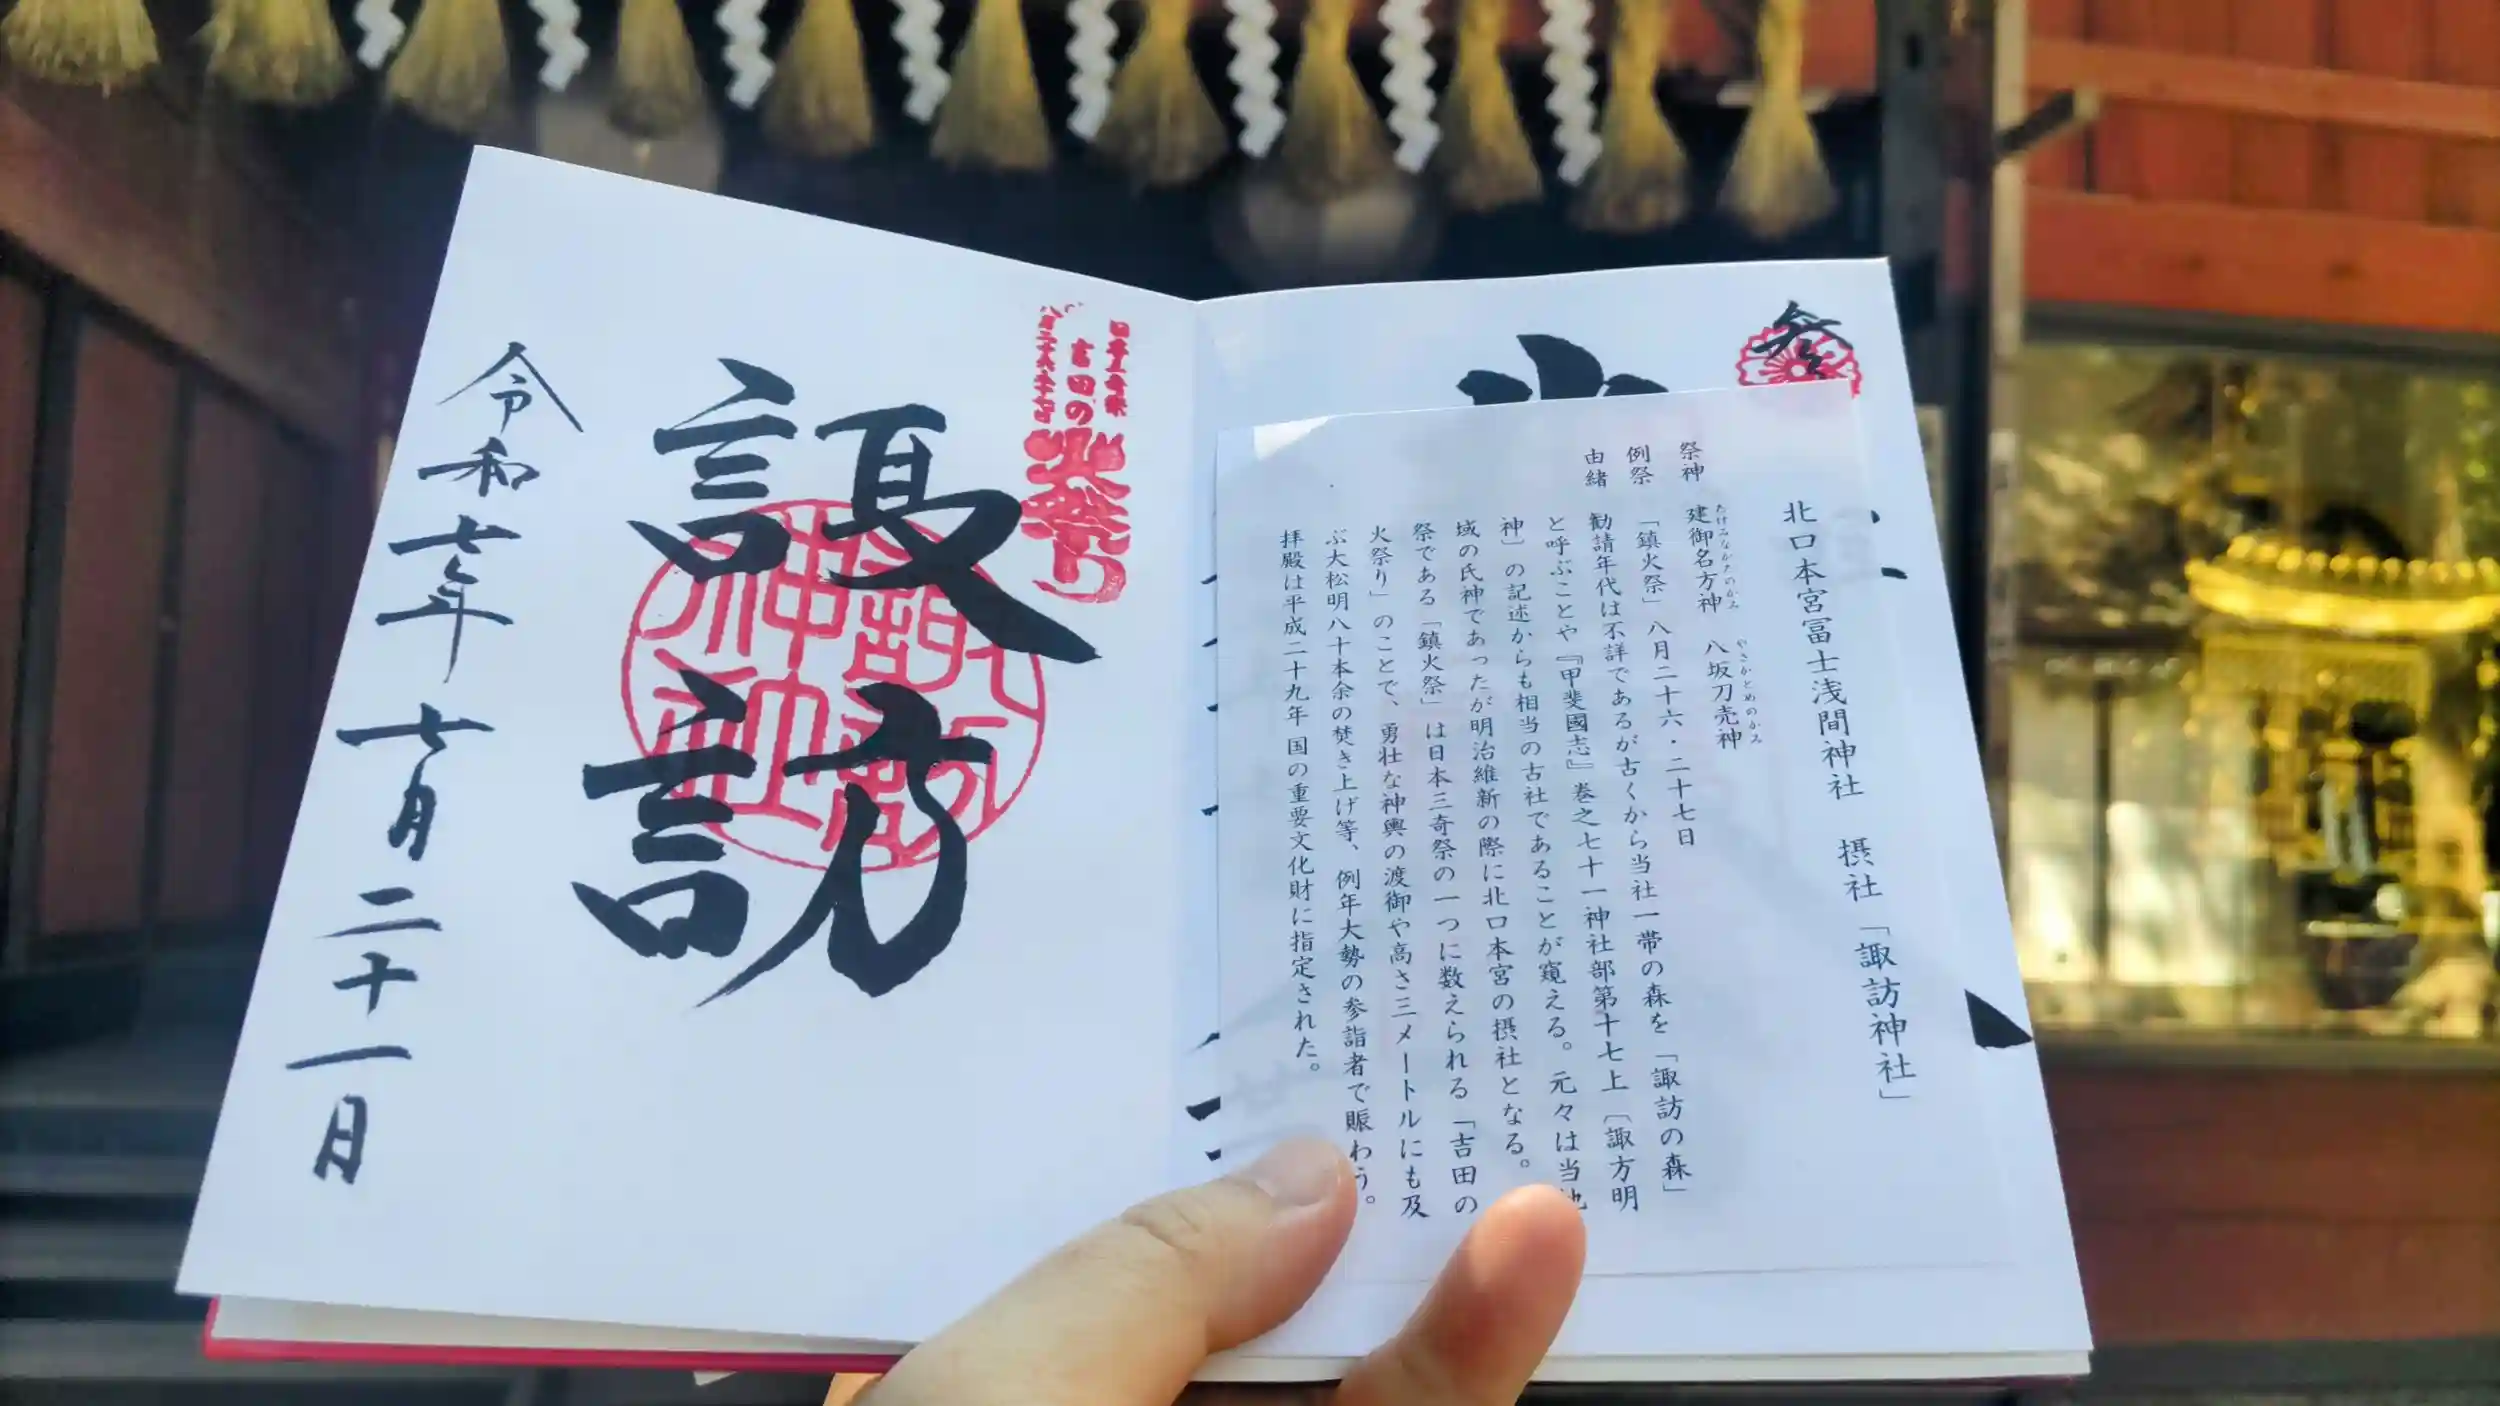 北口本宮冨士浅間神社 摂社「諏訪神社」
祭神 建御名方神 八坂刀売神
たけみなかたのかみ やさかとめのかみ
例祭 「鎮火祭」八月二十六・二十七日
由緒 勧請年代は不詳であるが古くから当社一帯の森を「諏訪の森」
と呼ぶことや『甲斐國志』巻之七十一神社部第十七上〔諏方明
神」の記述からも相当の古社であることが窺える。元々は当地
域の氏神であったが明治維新の際に北口本宮の摂社となる。
祭である「鎮火祭」は日本三奇祭の一つに数えられる「吉田の
火祭り」のことで、勇壮な神輿の渡御や高さ三メートルにも及
ぶ大松明八十本余の焚き上げ等、例年大勢の参詣者で賑わう。
拝殿は平成二十九年国の重要文化財に指定された。
日本三奇祭
吉田の火祭り
諏訪
諏訪神社
令和七年七月二十一日